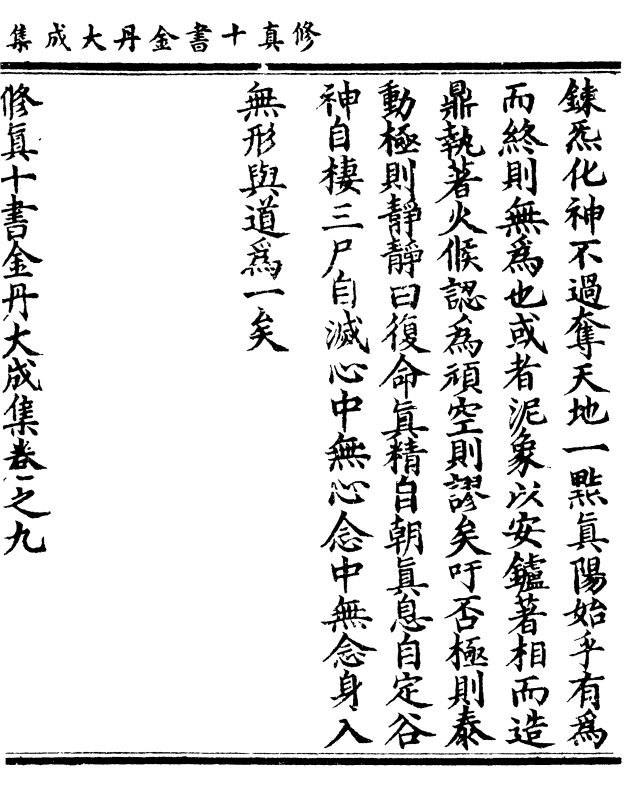 修真十書金丹大成集
鍊炁化神不過奪天地一點眞陽始乎有爲
而終則無爲也或者泥象以安鑪著相而造
鼎執著火候認爲頑空則謬矣吁否極則泰
動極則靜靜曰復命眞精自朝眞息自定谷
神自棲三尸自滅心中無心念中無念身入
無形與道爲一矣
修眞十書金丹大成集卷之九